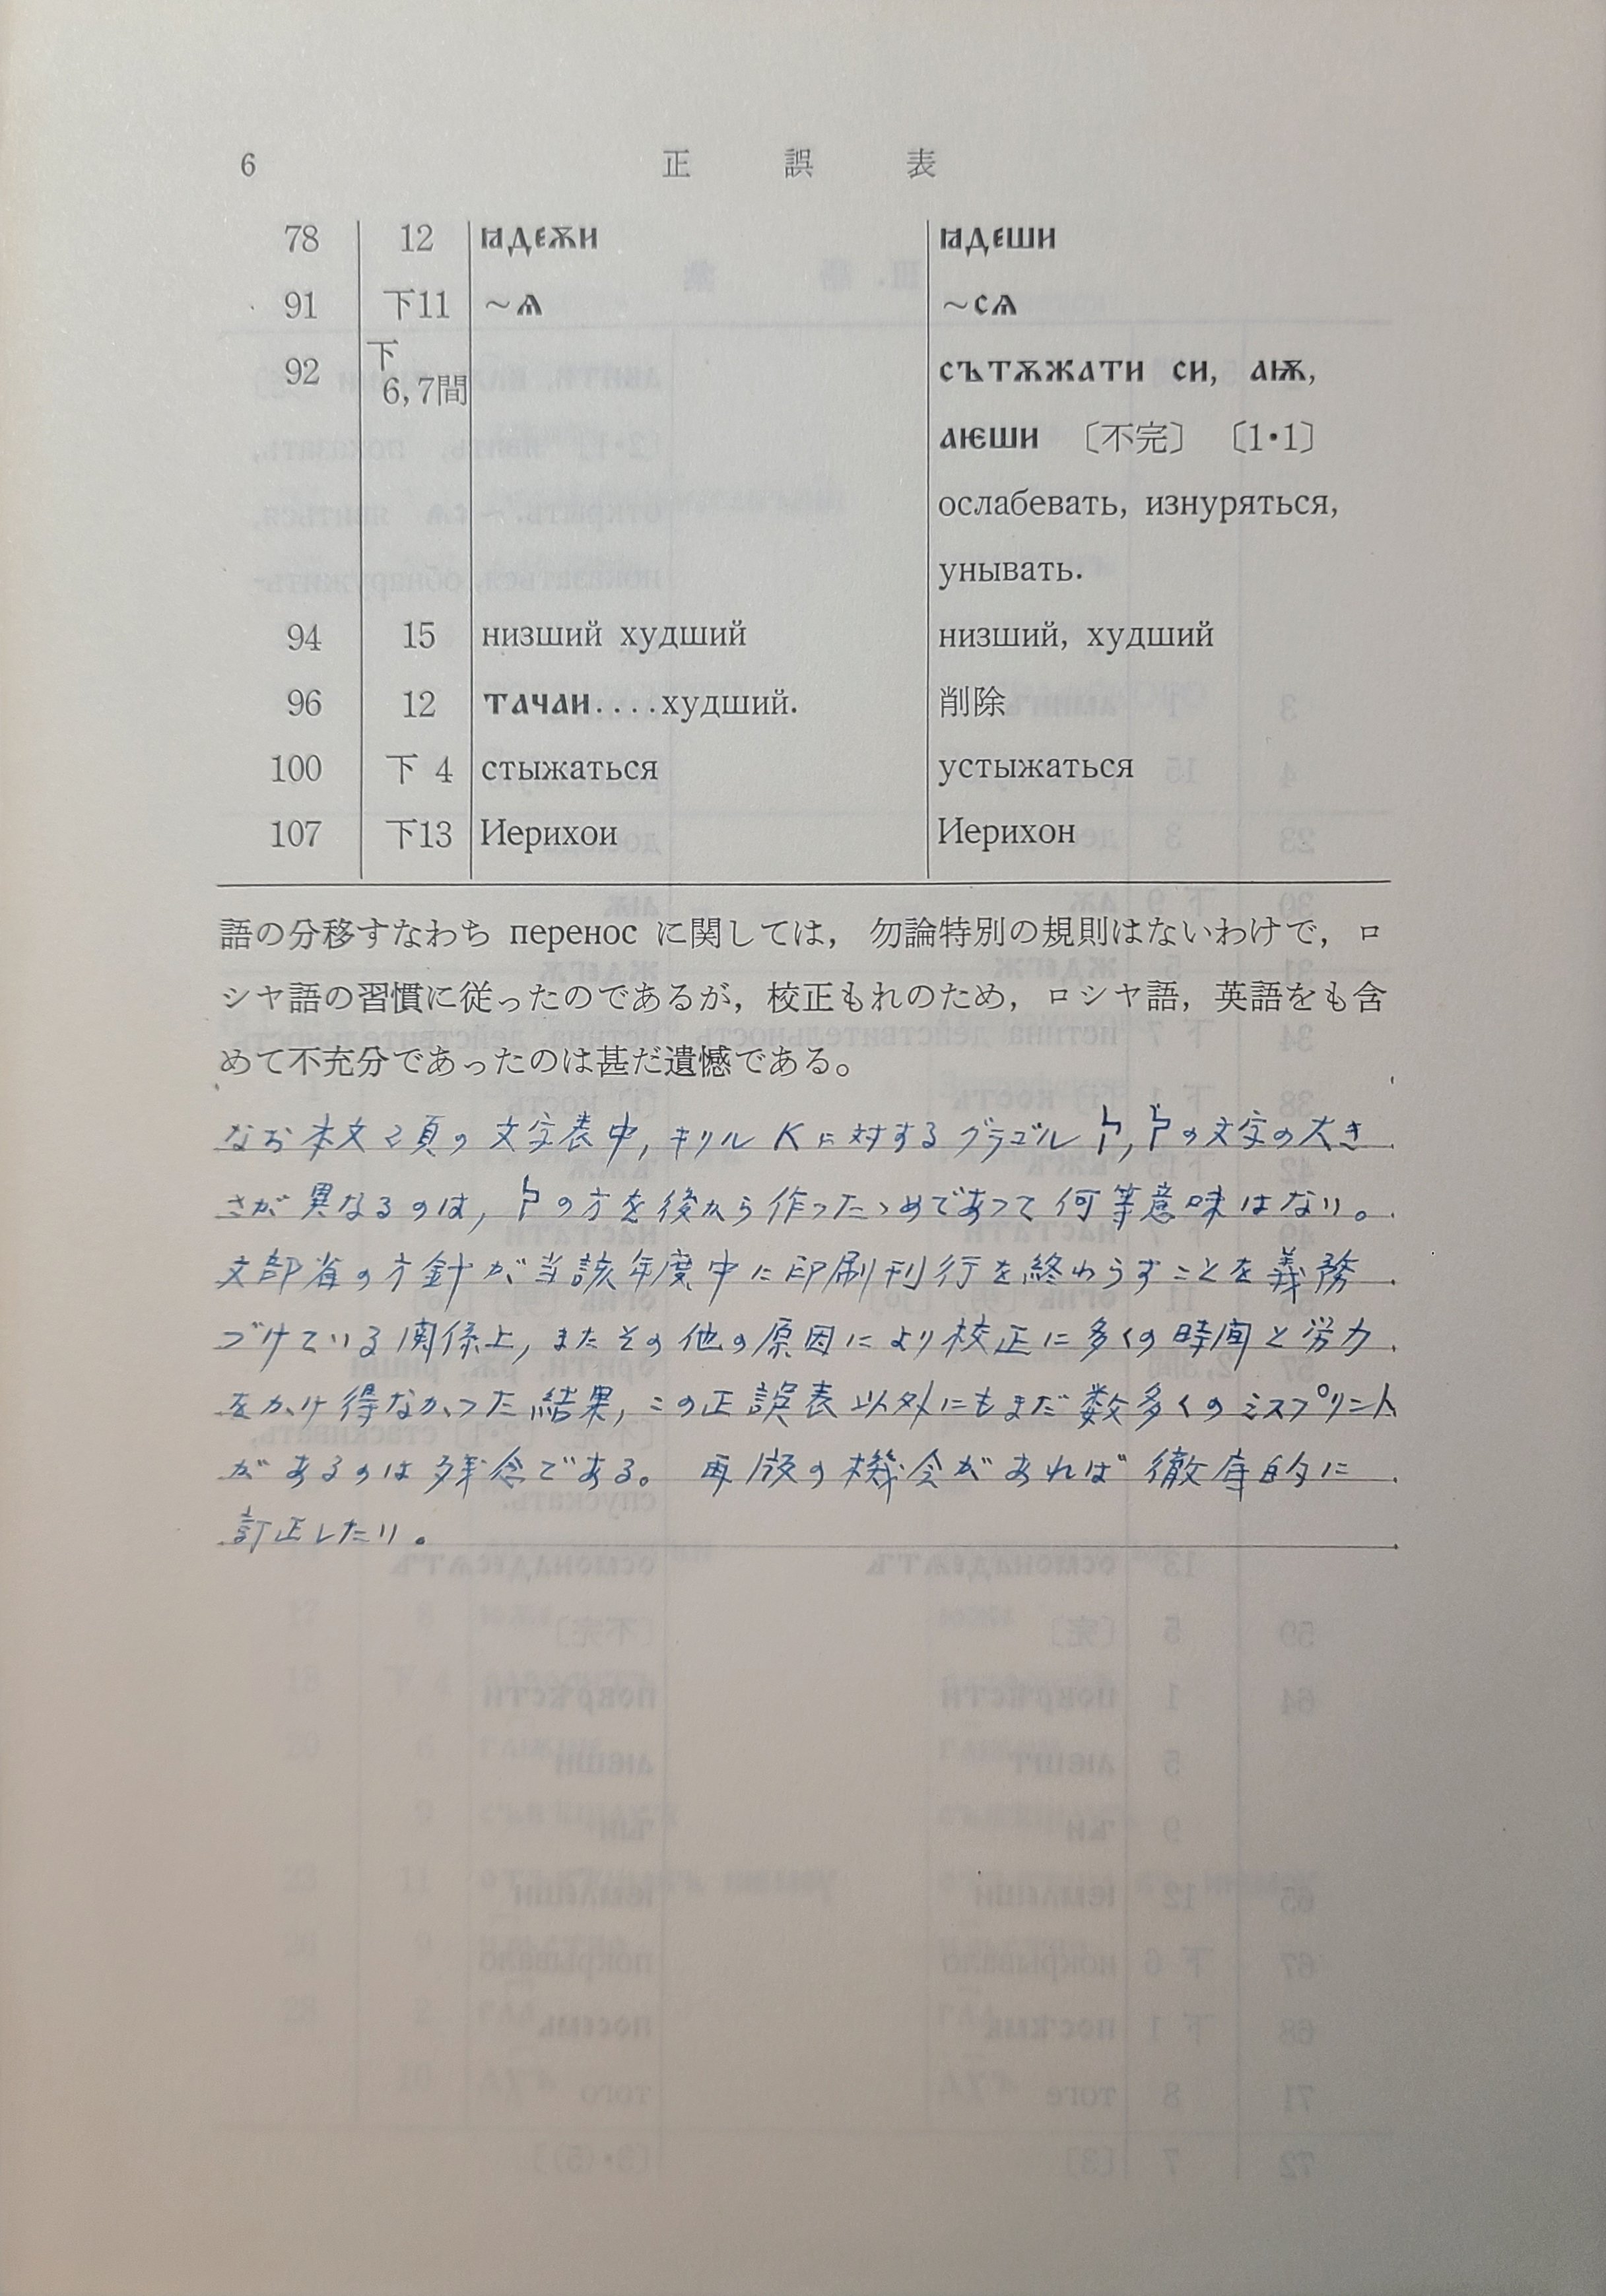 6 正誤表
78 12 ꙗдеѫи ꙗдеши
91 下11 ~ѧ ~сѧ
92 下6,7間 сътѫжати си, аѭ,
аѥши 〔不完〕 〔1·1〕
ослабевать, изнуряться,
унывать.
94 15 низший худший низший, худший
96 12 тачаи....худший. 削除
100 下 4 стыжаться устыжаться
107 下13 Иерихои Иерихон
語の分移すなわち перенос に関しては, 勿論特別の規則はないわけで, ロ
シヤ語の習慣に従ったのであるが, 校正もれのため, ロシヤ語, 英語をも含
めて不充分であったのは甚だ遺憾である。
なお本文2頁の文字表中, キリル K に対するグラゴル ⰽ, ⰽ̇ の文字の大き
さが異なるのは, ⰽ の方を後から作ったゝめであって何等意味はない。
文部省の方針が当該年度中に印刷刊行を終わらすことを義務
づけている関係上, またその他の原因により校正に多くの時間と労力
をかけ得なかった結果, この正誤表以外にもまだ数多くのミスプリント
があるのは残念である。 再版の機会があれば徹底的に
訂正したい。